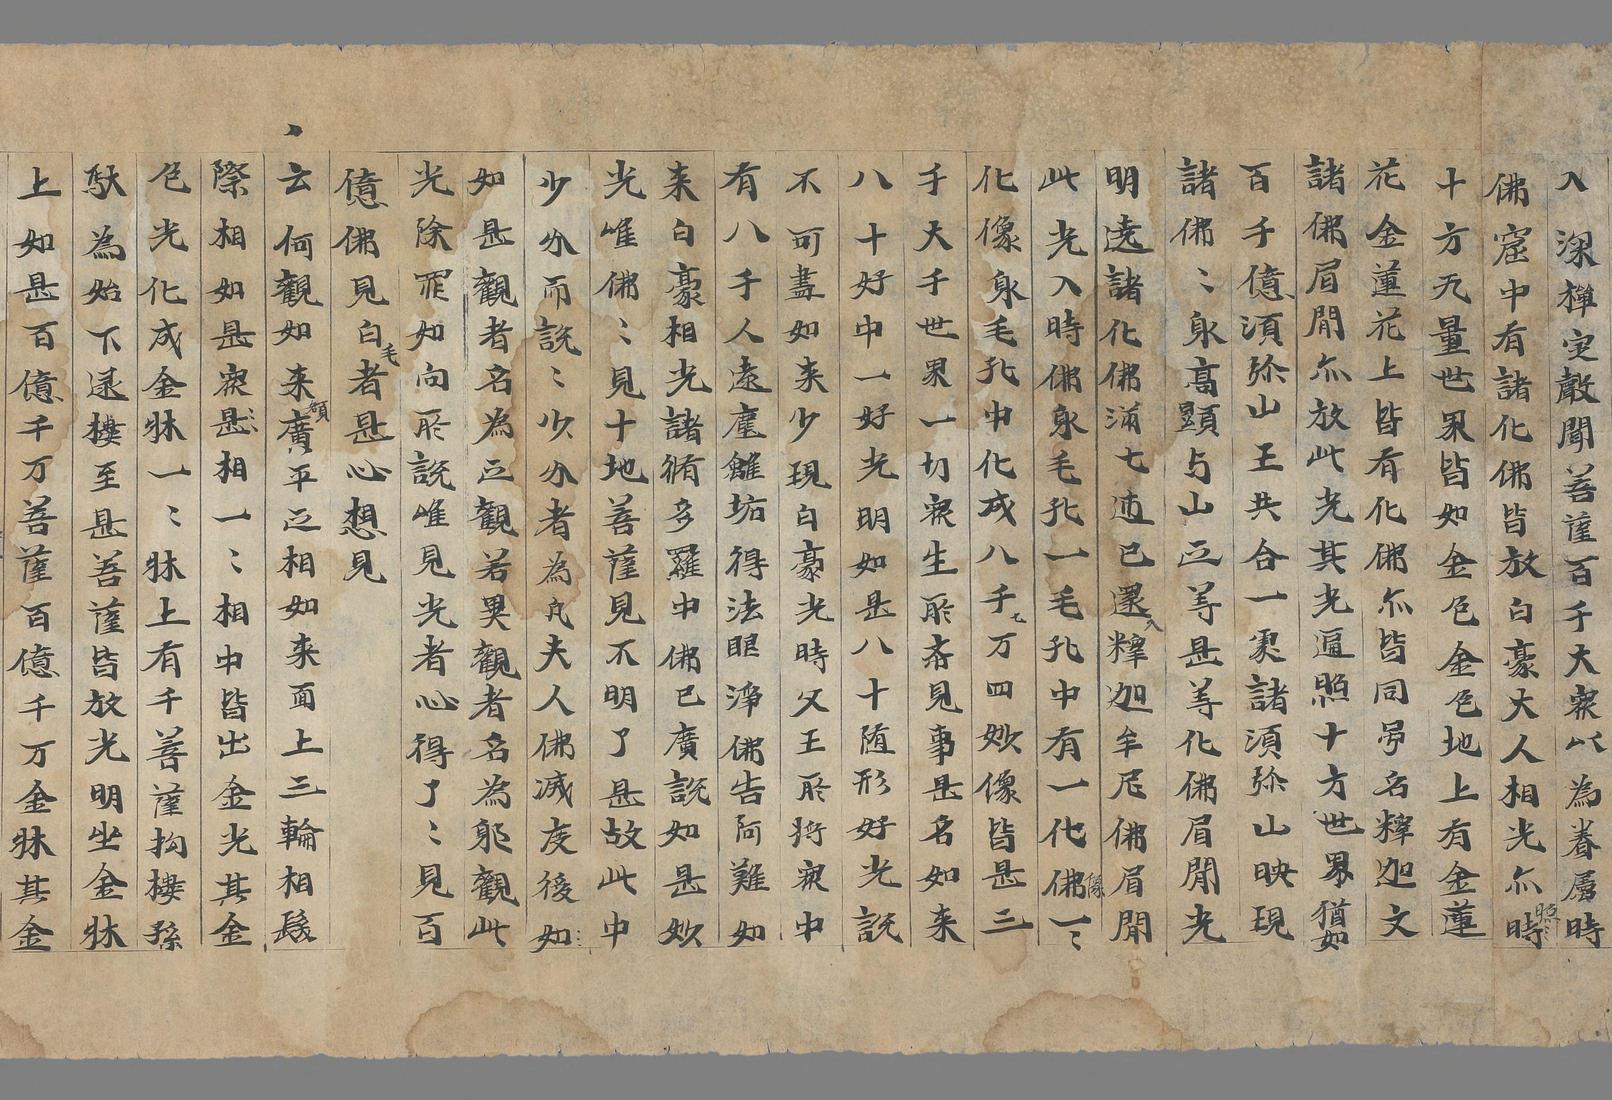 入深禪定聲聞菩薩百千大衆以為眷屬時
佛窟中有諸化佛皆放白豪大人相光亦照時
十方无量世界皆如金色金色地上有金蓮
花金蓮花上皆有化佛亦皆同号名釋迦文
諸佛眉間亦放此光其光遍照十方世界猶如
百千億湏弥山王共合一處諸湏弥山映現
諸佛〻身高顯与山正等是等化佛眉間光
明遶諸化佛滿七迊已還入釋迦牟尼佛眉間
此光入時佛身毛孔一毛孔中有一化佛像一〻
化像身毛孔中化成八千七万四妙像皆是三
千大千世界一切衆生所希見事是名如来
八十好中一好光明如是八十隨形好光說
不可盡如来少現白豪光時父王所將衆中
有八千人遠塵離垢得法眼淨佛告阿難如
来白豪相光諸脩多羅中佛已廣說如是妙
光唯佛〻見十地菩薩見不明了是故此中
少分而說〻少分者為凡夫人佛滅度後如
如是觀者名為正觀若異觀者名為邪觀此
光除罪如向所說唯見光者心得了〻見百
億佛見白毛者是心想見
云何觀如来額廣平正相如来面上三輪相髮
際相如是衆是相一〻相中皆出金光其金
色光化成金牀一〻牀上有千菩薩拘樓孫
馱為始下逮樓至是菩薩皆放光明坐金牀
上如是百億千万菩薩百億千万金牀其金